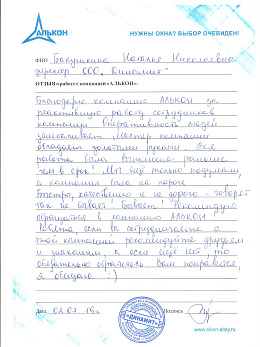 АЛЬКОН
НУЖНЫ ОКНА? ВЫБОР ОЧЕВИДЕН!
ФИО Наталья Николаевна
директор ООО "Динамит"
ОТЗЫВ о работе с компанией «АЛЬКОН»:
Благодарю компанию АЛЬКОН за
реактивную работу сотрудников
компании Оперативность людей
зашкаливает. Мастер компании
обладает золотыми руками. Вся
работа была выполнена раньше
чем в срок! Мы ещё только подумали,
а компания была на пороге
Быстро, качественно и не дорого - говорят
так не бывает! Бывает! Рекомендую
обращаться в компанию АЛЬКОН
Ребята, если вы сотрудничаете с
этой компанией рекомендуйте друзьям
и знакомым, а если ещё нет, то
обязательно обратитесь. Вам понравится,
я обещаю! :)
Дата 02.07.19г.
Подпись
"ДИНАМИТ"
www.alkon-altay.ru